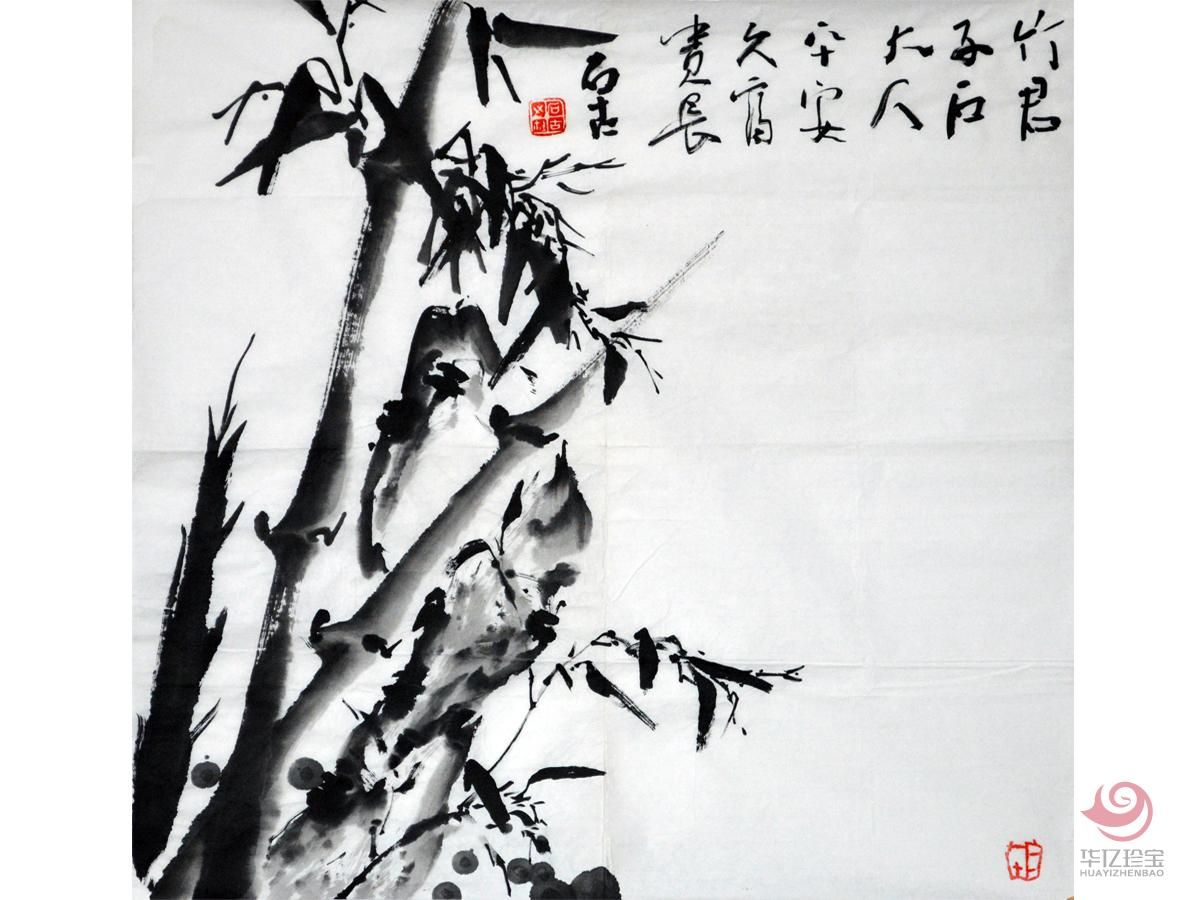 竹君
子石
大人
平安
久富
貴長
石古
华亿珍宝
HUAYIZHENBAO